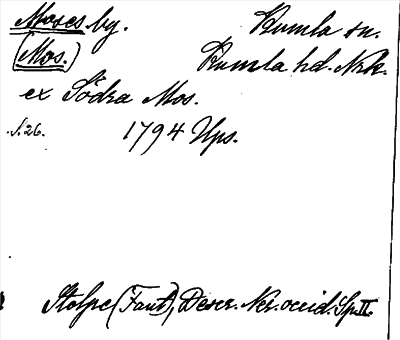 Moses by. Kumla sn.
(Mos.) Kumla hd. Nrk.
ex Södra Mos.
s. 26. 1794 Ups.
Stolpe (Fant), Descr. Ner. occid. Sp. II.